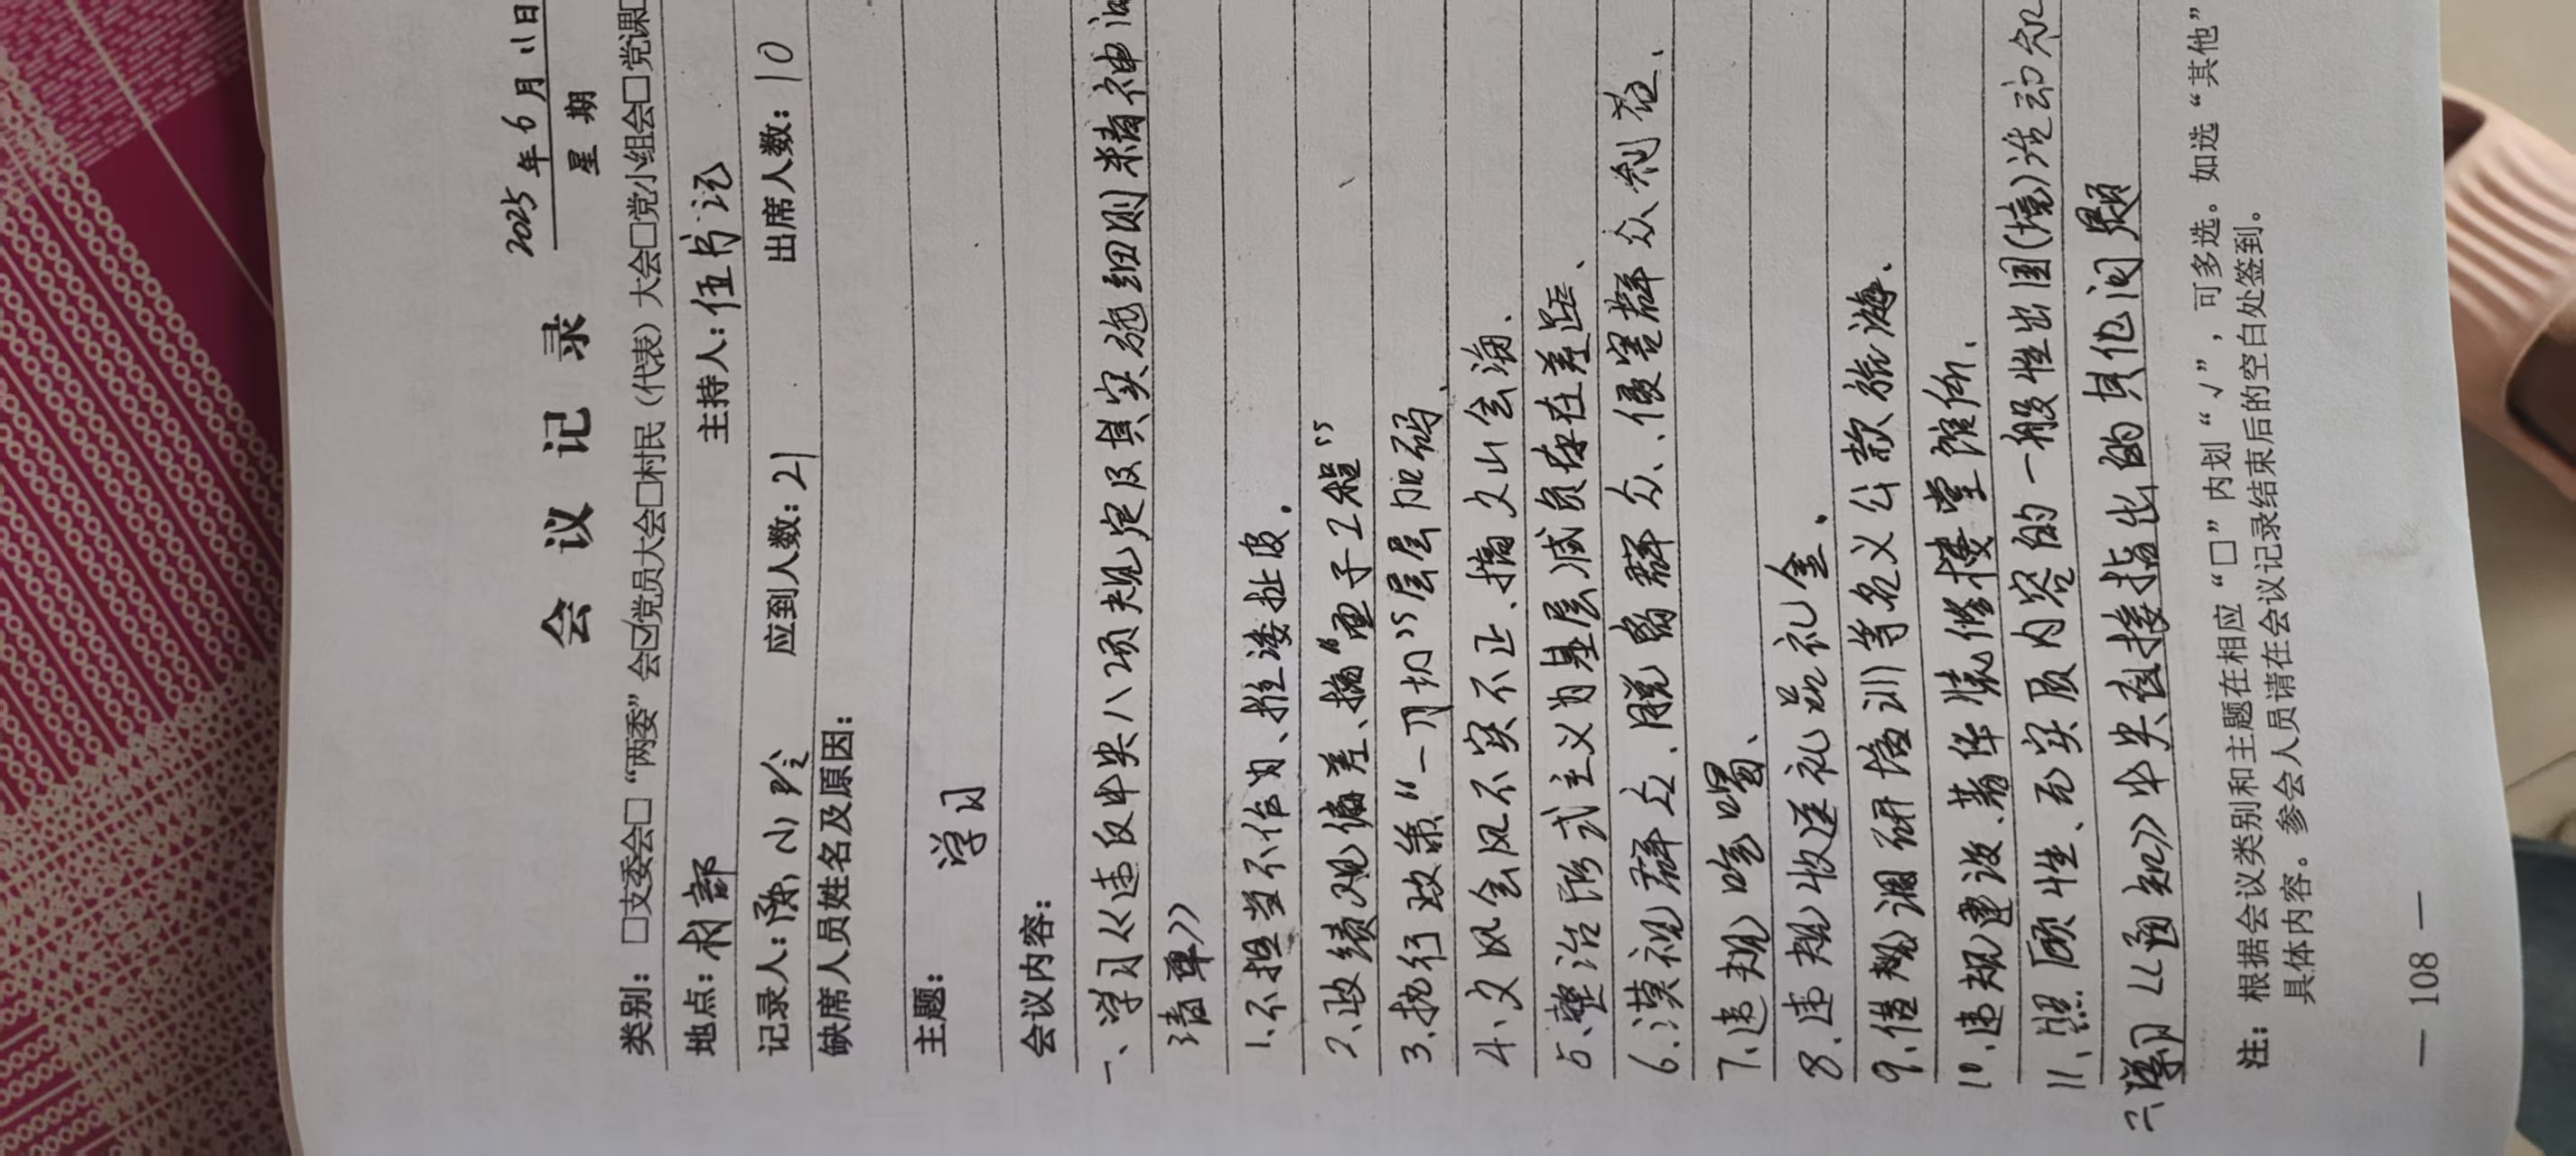 会 议 记 录
2025年6月11日
星期
类别：□支委会□“两委”会☑党员大会□村民（代表）大会□党小组会□党课
地点：村部 主持人：伍书记
记录人：陈小玲 应到人数：21 出席人数：10
缺席人员姓名及原因：
主题： 学习
会议内容：
一、学习《违反中央八项规定及其实施细则精神
清单》
1、不担当不作为、推诿扯皮.
2、政绩观偏差、搞“面子工程”
3、执行政策“一刀切”层层加码、
4、文风会风不实不正、搞文山会海、
5、整治形式主义为基层减负存在差距、
6、漠视群众、脱离群众、侵害群众利益、
7、违规吃喝、
8、违规收送礼品礼金、
9、借规调研培训等名义公款旅游、
10、违规建设、装修楼堂馆所、
11、照顾性、无实质内容的一般性出国(境)活动
二、学习《通知》中央直接指出的其他问题
注：根据会议类别和主题在相应“□”内划“√”，可多选。如选“其他”
具体内容。参会人员请在会议记录结束后的空白处签到。
— 108 —